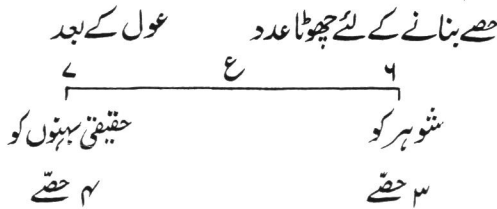 حصے بنانے کے لئے چھوٹا عدد عول کے بعد
۶ ع ۷
شوہر کو حقیقی بہنوں کو
۳ حصّے ۴ حصّے